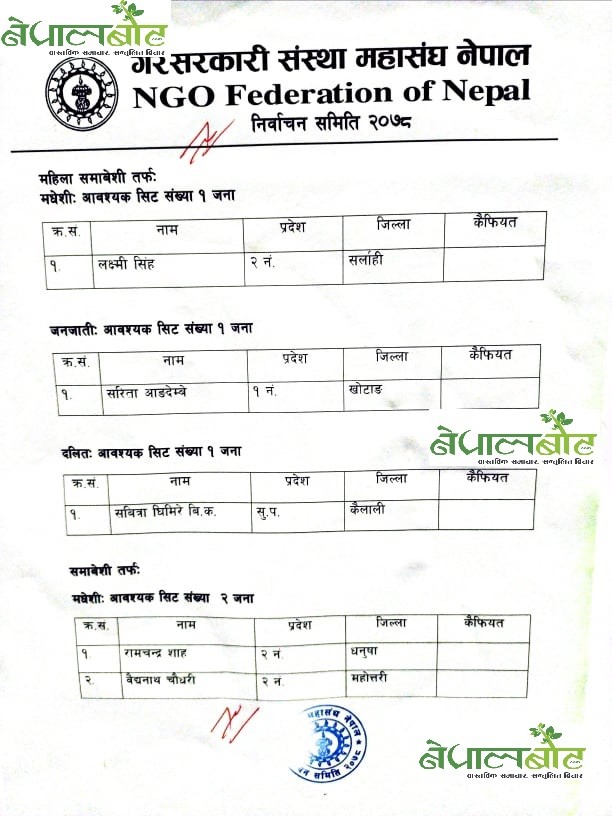 नेपालबोट
वास्तविक समाचार, सन्तुलित विचार
गैरसरकारी संस्था महासंघ नेपाल
NGO Federation of Nepal
निर्वाचन समिति २०७८
महिला समाबेशी तर्फः
मधेशीः आवश्यक सिट संख्या १ जना
क्र.सं. नाम प्रदेश जिल्ला कैफियत
१. लक्ष्मी सिंह २ नं. सर्लाही
जनजातीः आवश्यक सिट संख्या १ जना
क्र.सं. नाम प्रदेश जिल्ला कैफियत
१. सरिता आङदेम्वे १ नं. खोटाङ
नेपालबोट
वास्तविक समाचार, सन्तुलित विचार
दलितः आवश्यक सिट संख्या १ जना
क्र.सं. नाम प्रदेश जिल्ला कैफियत
१. सबित्रा घिमिरे बि.क. सु.प. कैलाली
समाबेशी तर्फः
मधेशीः आवश्यक सिट संख्या २ जना
क्र.सं. नाम प्रदेश जिल्ला कैफियत
१. रामचन्द्र शाह २ नं. धनुषा
२. वैद्यनाथ चौधरी २ नं. महोत्तरी
महासंघ नेपाल
समिति २०७८
नेपालबोट
वास्तविक समाचार, सन्तुलित विचार